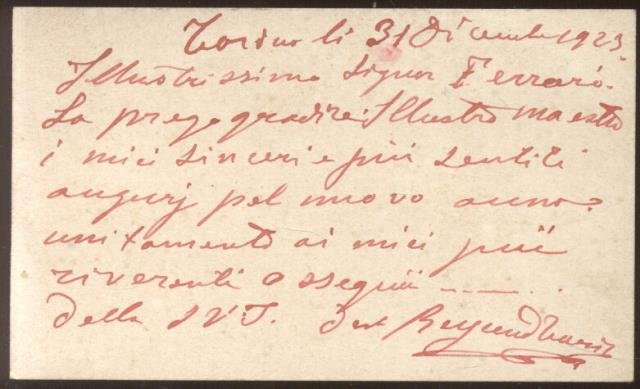 Torino li 31 Dicembre 1923.
Illustrissimo Signor Ferrari.
La prego gradire Illustro maestro
i miei sinceri e più sentiti
augurj pel nuovo anno
unitamento ai miei più
riverenti ossequii ........
della S.V.I.